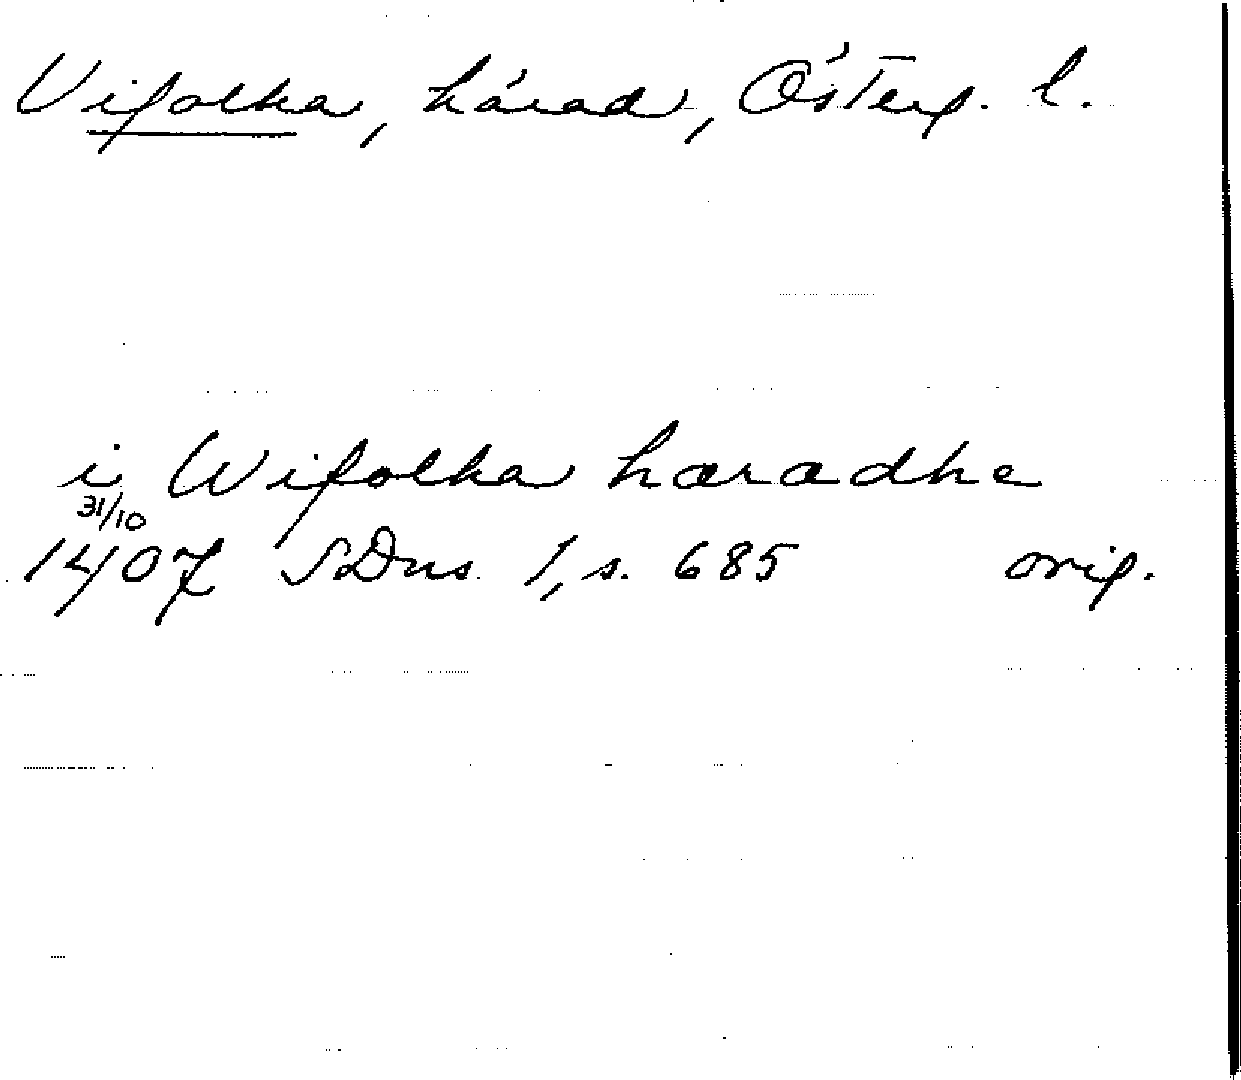 Vifolka, härad, Österg. l.
i Wifolka hæradhe
31/10
1407 SDns 1, s. 685 orig.